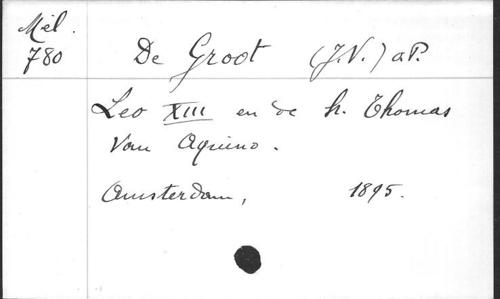 Mél.
780
De Groot (J.V.) a P.
Leo XIII en de h. Thomas
van Aquino.
Amsterdam, 1895.